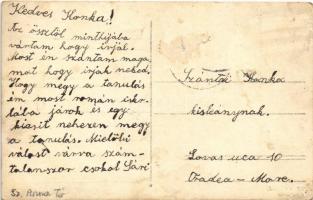 Kedves Honka!
Az össtől mintkijába
vártam hogy irjál.
Most én szántam maga-
mat hogy irjak neked.
Hogy megy a tanulás
én most román isko-
lába járok és egy
kicsit nehezen megy
a tanulás. Mielőbi
választ várva szám-
talanszor csokol Sári
Szántói Honka
kisleánynak.
Lovas uca 10
Oradea-Mare.
Sz. Anna Tó